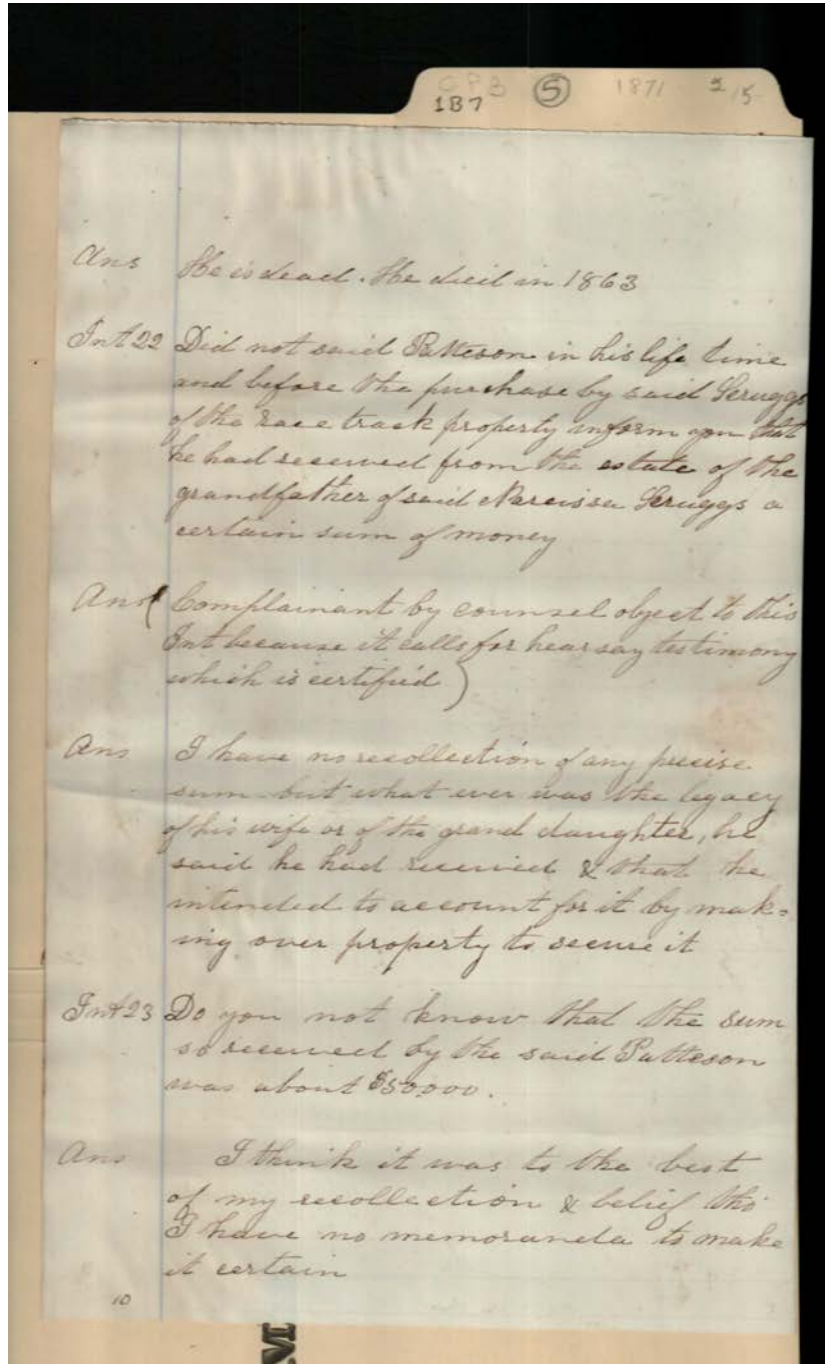 CPB
1B7 (5) 1871 2/15
Ans He is dead. He died in 1863
Int 22 Did not said Patteson in his life time
and before the purchase by said Scruggs
of the race track property inform you that
he had received from the estate of the
grandfather of said Narcissa Scruggs a
certain sum of money
Ans (Complainant by counsel object to this
Int because it calls for hear say testimony
which is certified)
Ans I have no recollection of any precise
sum but what ever was the legacy
of his wife or of the grand daughter, he
said he had received & that he
intended to account for it by mak=
ing over property to secure it
Int 23 Do you not know that the sum
so received by the said Patteson
was about $50000.
Ans I think it was to the best
of my recollection & belief tho'
I have no memoranda to make
it certain
10